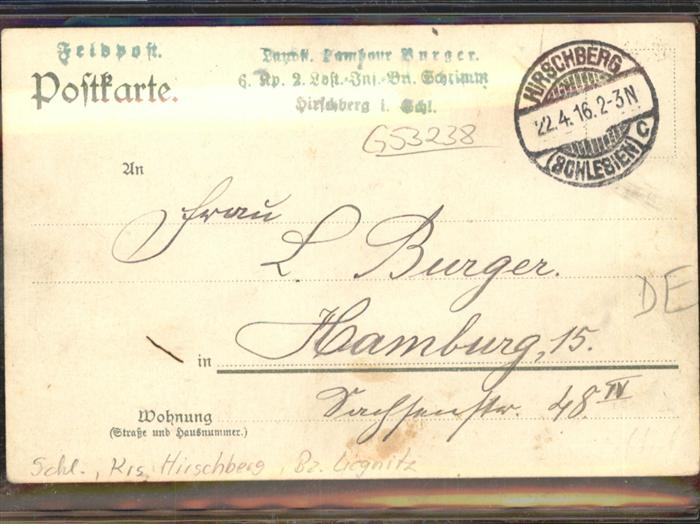 Feldpost.
Landst. Tambour Burger.
6. Kp. 2. Lst.-Inf.-Btl. Schrimm
Hirschberg i. Schl.
Postkarte.
HIRSCHBERG
22.4.16.2-3N
(SCHLESIEN) C
G53238
An
Frau
L Burger.
DE
in Hamburg, 15.
Sachsenstr. 48 IV
Wohnung
(Straße und Hausnummer.)
Schl., Krs Hirschberg, Bz. Liegnitz